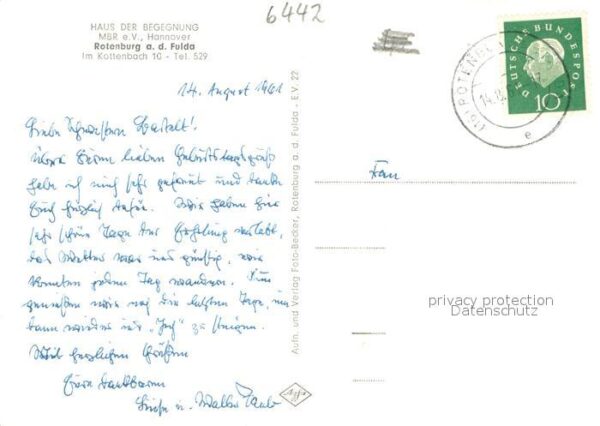 6442
HAUS DER BEGEGNUNG
MBR e.V., Hannover
Rotenburg a. d. Fulda
Im Kottenbach 10 - Tel. 529
DEUTSCHE BUNDESPOST
10
(16) ROTENBU
e
14. August 1961
Liebe Schwestern
Über Ihren lieben Geburtstagsgruß
habe ich mich sehr gefreut und danke
Euch herzlich dafür. Wir haben hier
sehr schöne Tage der Erholung verlebt,
das Wetter war uns günstig, wir
konnten jeden Tag wandern. Nun
genießen wir noch die letzten Tage, um
dann wieder ins „Joch“ zu steigen.
Mit herzlichen Grüßen
Eure dankbaren
u. Walter
Aufn. und Verlag Foto-Becker, Rotenburg a. d. Fulda - E.V. 22
Agfa
Frau
privacy protection
Datenschutz